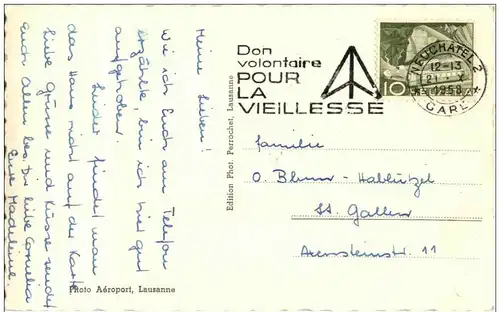 Meine Lieben!
Wie ich Euch am Telefon
erzählte, bin ich hier gut
aufgehoben.
Leider findet man
das Haus nicht auf der Karte
Liebe Grüsse und Küsse sendet
Euch Allen bes. Dir liebe Cornelia
Eure Madeleine.
Photo Aéroport, Lausanne
Edition Phot. Perrochet, Lausanne
Don
volontaire
POUR
LA
VIEILLESSE
NEUCHÂTEL 2
12-13
21 X
1958
GARE
10
HELVETIA
Familie
O. Blum-Hablützel
St. Gallen
Axensteinstr. 11